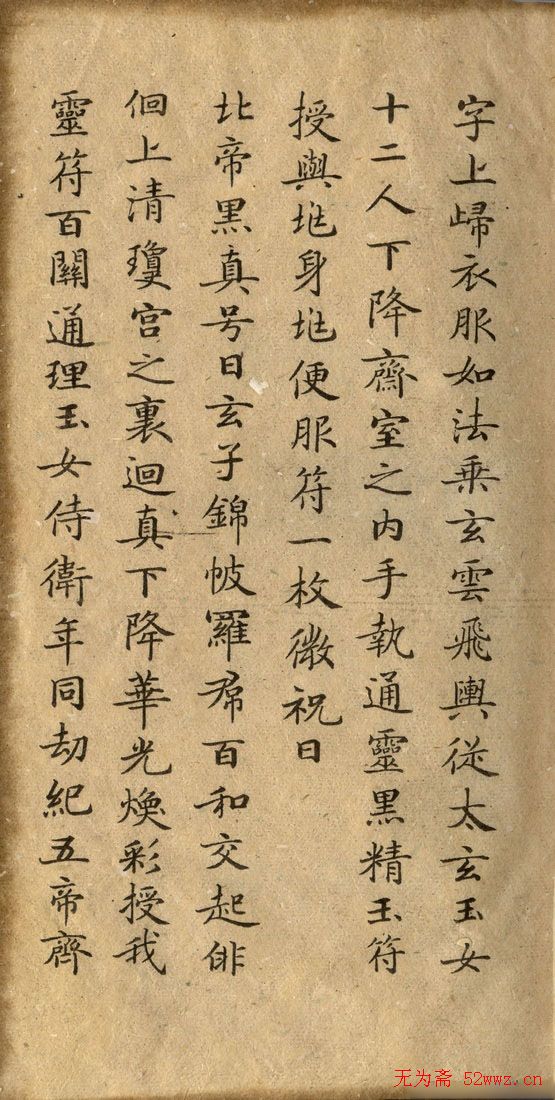 字上歸衣服如法乘玄雲飛輿從太玄玉女
十二人下降齋室之内手執通靈黑精玉符
授與垗身垗便服符一枚微祝曰
北帝黑真号曰玄子錦帔羅帬百和交起俳
佪上清瓊宫之裏迴真下降華光煥彩授我
靈符百關通理玉女侍衛年同劫紀五帝齊
无为斋 52wwz.cn